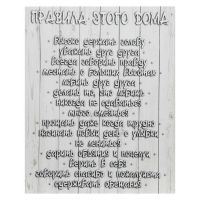 ПРАВИЛА ЭТОГО ДОМА
Высоко держать голову
уважать друг друга
Всегда говорить правду
мечтать о Большом Высоком
любить друг друга
делать то, что любишь
никогда не сдаваться
много смеяться
прощать даже когда трудно
начинать новый день с улыбки
не лениться
дарить объятия и поцелуи
Верить В себя
говорить спасибо и пожалуйста
сдерживать обещания